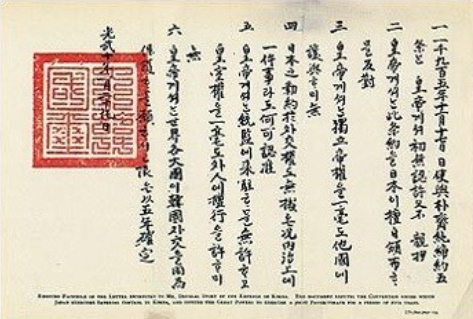 一 一千九百五年十一月十七日 日使與朴齊純締約五
條는 皇帝게셔 初無認許又不 親押
二 皇帝게셔는 此條約을 日本이 擅自頒布
을 反對
三 皇帝게셔는 獨立帝權을 一毫도 他國에
讓與 無
四 日本之勒約於外交權도 無據 況內治上에
一件事라도 何可認准
五 皇帝게셔는 統監에 來駐 無許
皇室權을 一毫도 外人에 擅行을 許
無
六 皇帝게셔는 世界各大國이 韓國外交을 同爲
保護 願 限은 以五年確定
光武十年一月二十九日
Reduced Facsimile of the Letter entrusted to Mr. Douglas Story by the Emperor of Korea. The document refutes the Convention under which
Japan exercises Imperial control in Korea, and invites the Great Powers to exercise a joint Protectorate for a period of five years.